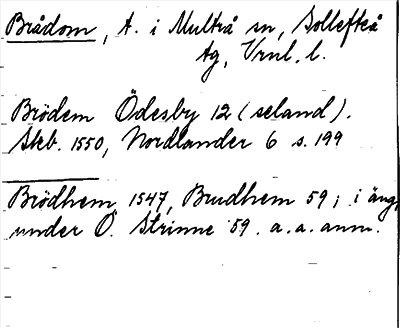 Brådom, t. i Multrå sn, Sollefteå
tg, Vrnl. l.
Brödem Ödesby 12 (seland).
Skb. 1550, Nordlander 6 s. 199
Brödhem 1547, Brudhem 59; i äng,
under Ö. Strinne 59. a. a. anm.